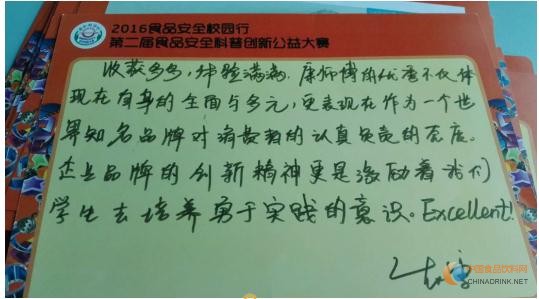 2016食品安全校园行
第二届食品安全科普创新公益大赛
收获多多，体验满满。康师傅的优秀不仅体
现在自身的全面与多元，更表现在作为一个世
界知名品牌对消费者的认真负责的态度。
企业品牌的创新精神更是激励着我们
学生去培养勇于实践的意识。Excellent!
中国食品饮料网
CHINADRINK.NET